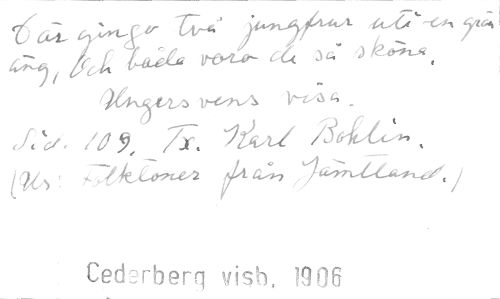 Där gingo två jungfrur uti en grön
äng, Och båda voro de så sköna.
Ungersvens visa.
Sid. 109. Tx. Karl Bohlin.
(Ur: Folktoner från Jämtland.)
Cederberg visb. 1906